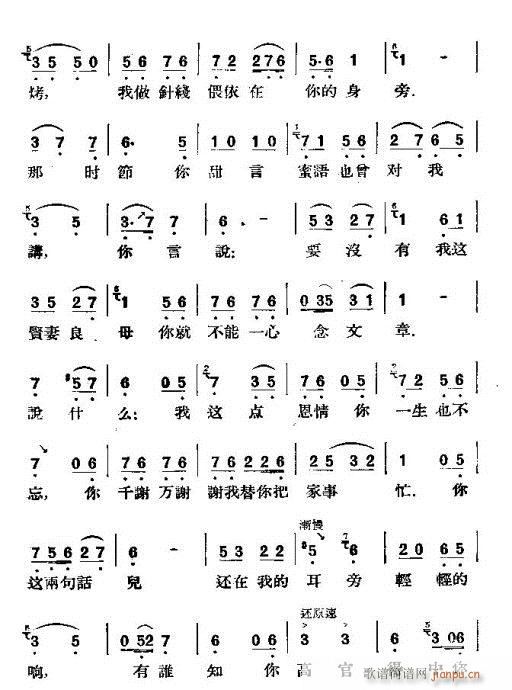 3 5 5 0 | 5 6 7 6 | 7 2 2 7 6 | 5· 6 1 | 1 -
烤, 我做針綫 偎依在 你的身 旁.
3 7 7 | 6· 5 | 1 0 1 0 | 7 1 5 6 | 2 7 6 5
那时節 你 甜言 蜜語也曾 对我
3 5 | 3· 7 7 | 6 - | 5 3 2 7 | 1 6 1
講, 你言說: 要沒有我这
3 5 2 7 | 1 5 6 | 7 6 7 6 | 0 3 5 3 1 | 1 -
賢妻良 母你就 不能一心 念文 章.
7 5 7 | 6 0 5 | 7 3 5 | 7 6 0 5 | 7 2 5 6
說什么: 我这点 恩情你 一生也不
7 0 6 | 7 6 7 6 | 7 6 2 2 6 | 2 5 3 2 | 1 0 5
忘, 你 千謝万謝 謝我替你把 家事 忙. 你
7 5 6 2 7 | 6 - | 5 3 2 2 | 5 6 | 2 0 6 5
漸慢
这兩句話 兒 还在我的 耳旁 輕輕的
还原速
3 5 | 0 5 2 7 | 7 6 | 3 3 | 5 - | 3 0 6
响, 有誰知你高官得中你
歌谱简谱网
jianpu.cn